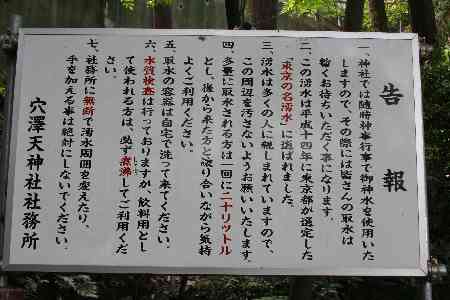 告報
一、神社では随時神事行事で御神水を使用いた
しますので、その際には皆さんの取水は
暫くお待ちいただく事になります。
二、この湧水は平成十四年に東京都が選定した
「東京の名湧水」に選ばれました。
三、湧水は多くの人に親しまれていますので、
この周辺を汚さないようお願いいたします。
四、多量に取水される方は一回に二十リットル
とし、後から来た方と譲り合いながら気持
よくご利用ください。
五、取水の容器は自宅で洗って来てください。
六、水質検査は行っておりますが、飲料用とし
て使われる方は、必ず煮沸してご利用くだ
さい。
七、社務所に無断で湧水周囲を変えたり、
手を加える事は絶対にしないでください。
穴澤天神社社務所